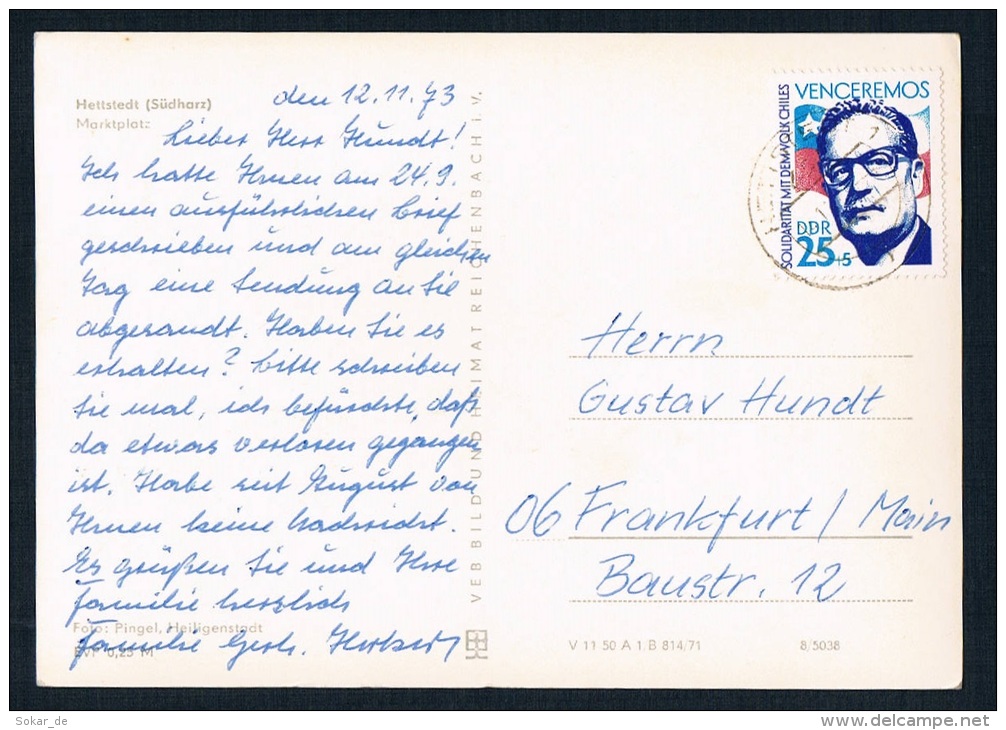 Hettstedt (Südharz)
Marktplatz
den 12.11.73
Lieber Herr Hundt!
Ich hatte Ihnen am 24.9.
einen ausführlichen Brief
geschrieben und am gleichen
Tag eine Sendung an Sie
abgesandt. Haben Sie es
erhalten? Bitte schreiben
Sie mal, ich befürchte, daß
da etwas verloren gegangen
ist. Habe seit August von
Ihnen keine Nachricht.
Es grüßen Sie und Ihre
Familie herzlich
Familie Gerh.
Foto: Pingel, Heiligenstadt
EVP 0,25 M
VEB BILD UND HEIMAT REICHENBACH I. V.
SOLIDARITÄT MIT DEM VOLK CHILES
VENCEREMOS
DDR
25+5
Herrn
Gustav Hundt
06 Frankfurt / Main
Baustr. 12
V 11 50 A 1/B 814/71
8/5038
Sokar_de
www.delcampe.net